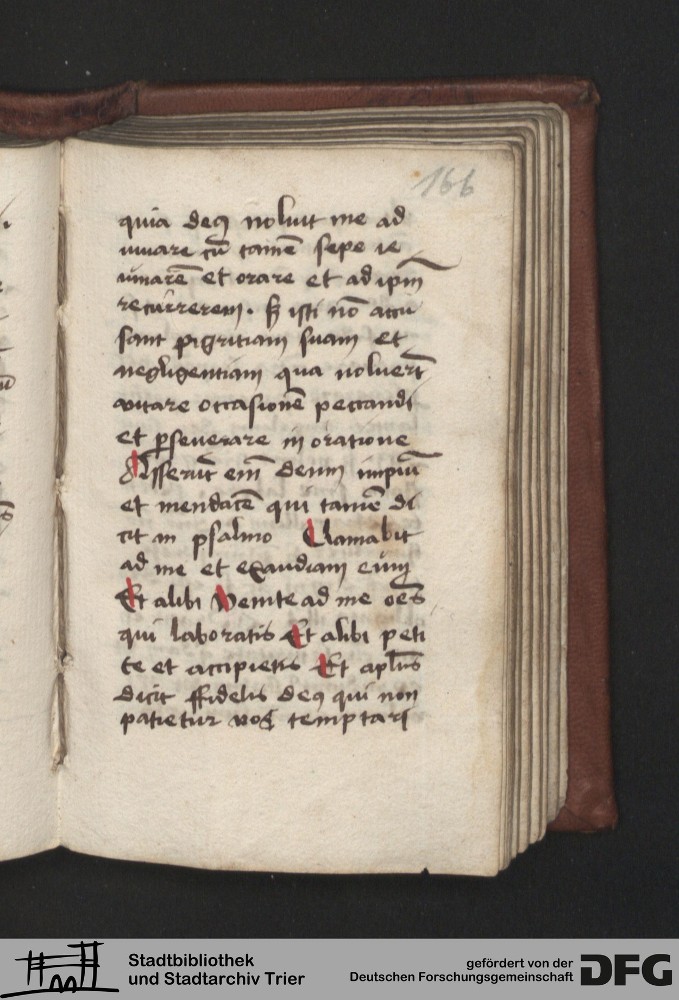 166
quia deꝯ noluit me ad
iuuare cū tamē sepe ie
iunarē et orare et ad ipm̄
recurrerem. sꝫ isti nō accu
sant pigritiam suam et
negligentiam qua noluert̄
vitare occasionē peccandi
et ꝑseuerare in oratione
Asserūt em̄ deum impiū
et mendacē qui tamē di
cit in psalmo Clamabit
ad me et exaudiam eum
Et alibi Venite ad me oēs
qui laboratis Et alibi peti
te et accipietis Et aplūs
dicit ffidelis deꝯ qui non
patietur vos temptari
Stadtbibliothek
und Stadtarchiv Trier
gefördert von der
Deutschen Forschungsgemeinschaft
DFG